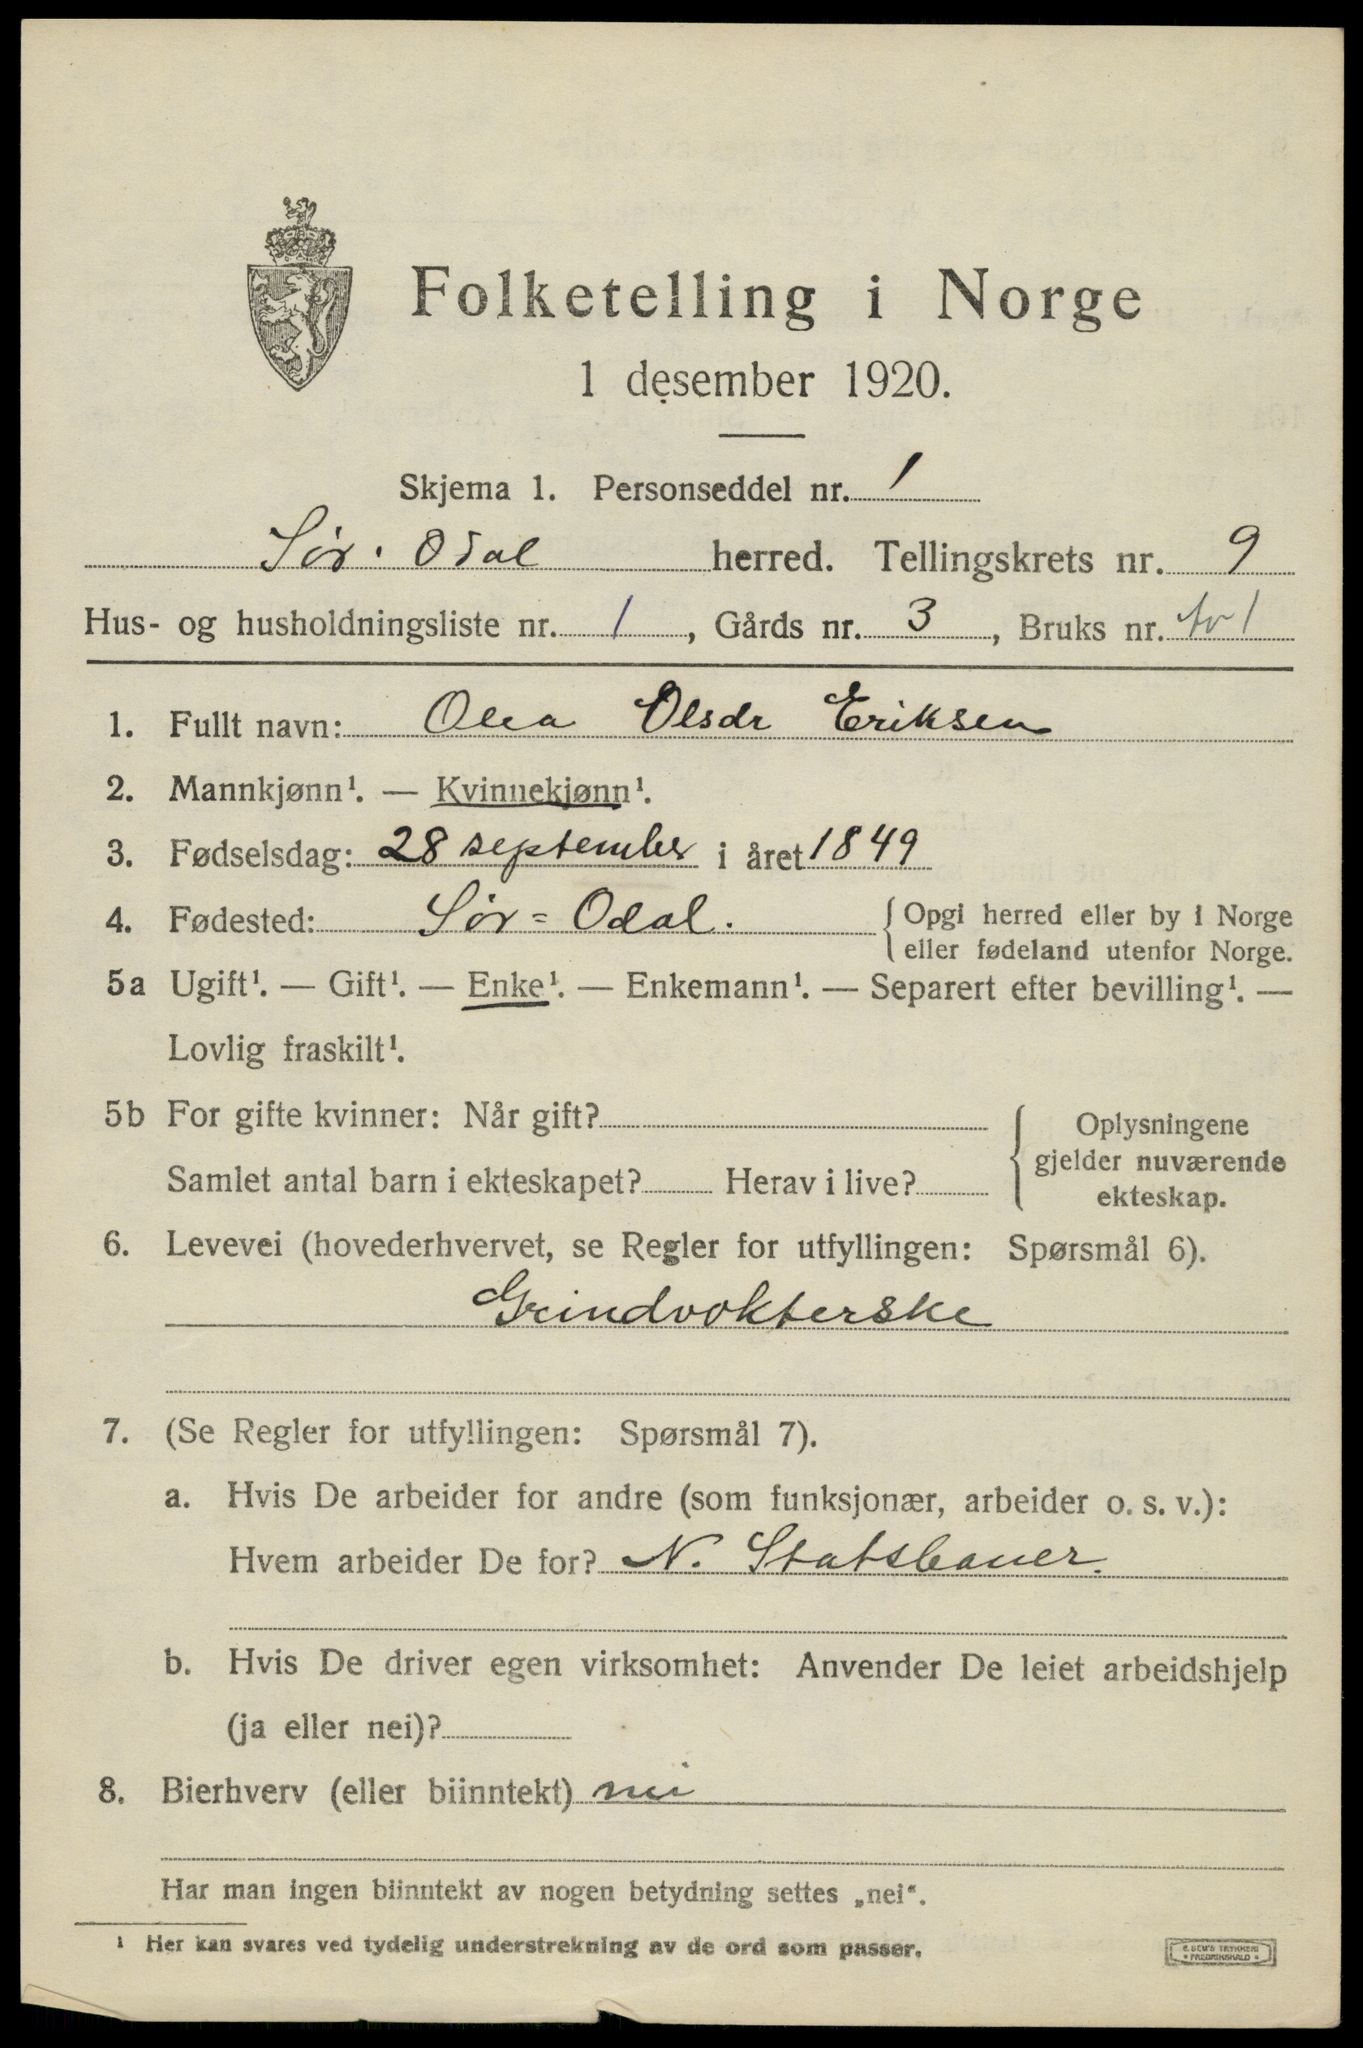 Folketelling i Norge
1 desember 1920.
Skjema 1. Personseddel nr. 1
Sør-Odal herred. Tellingskrets nr. 9
Hus- og husholdningsliste nr. 1, Gårds nr. 3, Bruks nr. av 1
1. Fullt navn: Olea Olsdr Eriksen
2. Mannkjønn¹. — Kvinnekjønn¹.
3. Fødselsdag: 28 september i året 1849
4. Fødested: Sør=Odal. { Opgi herred eller by i Norge
eller fødeland utenfor Norge.
5a Ugift¹. — Gift¹. — Enke¹. — Enkemann¹. — Separert efter bevilling¹. —
Lovlig fraskilt¹.
5b For gifte kvinner: Når gift?
Samlet antal barn i ekteskapet? Herav i live?
Oplysningene
gjelder nuværende
ekteskap.
6. Levevei (hovederhvervet, se Regler for utfyllingen: Spørsmål 6).
Grindvokterske
7. (Se Regler for utfyllingen: Spørsmål 7).
a. Hvis De arbeider for andre (som funksjonær, arbeider o. s. v.):
Hvem arbeider De for? N. Statsbaner.
b. Hvis De driver egen virksomhet: Anvender De leiet arbeidshjelp
(ja eller nei)?
8. Bierhverv (eller biinntekt) nei
Har man ingen biinntekt av nogen betydning settes „nei“.
¹ Her kan svares ved tydelig understrekning av de ord som passer.
E. SEM'S TRYKKERI
* FREDRIKSHALD *